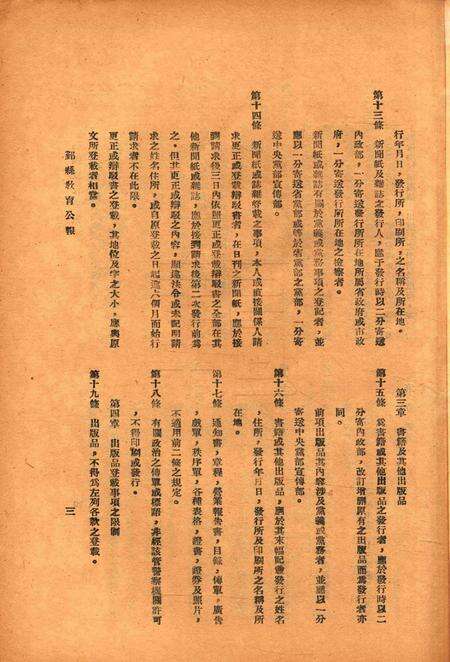 行年月日，發行所，印刷所，之名稱及所在地。
第十三條　新聞紙及雜誌之發行人，應于發行時以二分寄送
內政部，一分寄送發行所所在地所屬省政府或市政
府，一分寄送發行所所在地之檢察署。
新聞紙或雜誌有關於黨義或黨務事項之登記者，並
應以一分寄送省黨部或等於省黨部之黨部，一分寄
送中央黨部宣傳部。
第十四條　新聞紙或誌雜登載之事項，本人或直接關係人請
求更正或登載辯駁書者，在日刊之新聞紙，應於接
到請求後三日內依照更正或登載辯駁書之全部在其
他新聞紙或雜誌，應於接到請求後第二次發行前為
之。但其更正或辯駁之內容，顯違法令或未記明請
求之姓名住所，或自原登載之日起逾六個月而始行
請求者不在此限。
更正或辯駁書之登載，其地位及字之大小，應與原
文所登載者相當。
鄞縣教育公報
第三章　書籍及其他出版品
第十五條　為書籍或其他出版品之發行者，應於發行時以二
分寄內政部，改訂增刪原有之出版品而為發行者亦
同。
前項出版品其內容涉及黨義或黨務者，並應以一分
寄送中央黨部宣傳部。
第十六條　書籍或其他出版品，應於其末幅記載發行之姓名
，住所，發行年月日，發行所及印刷所之名稱及所
在地。
第十七條　通知書，章程，營業報告書，目錄，傳單，廣告
，戲單，秩序單，各種表格，證書，證券及照片，
不適用前二條之規定。
第十八條　有關政治之傳單或標語，非經該管警察機關許可
，不得印刷或發行。
第四章　出版品登載事項之限制
第十九條　出版品，不得為左列各款之登載。
三